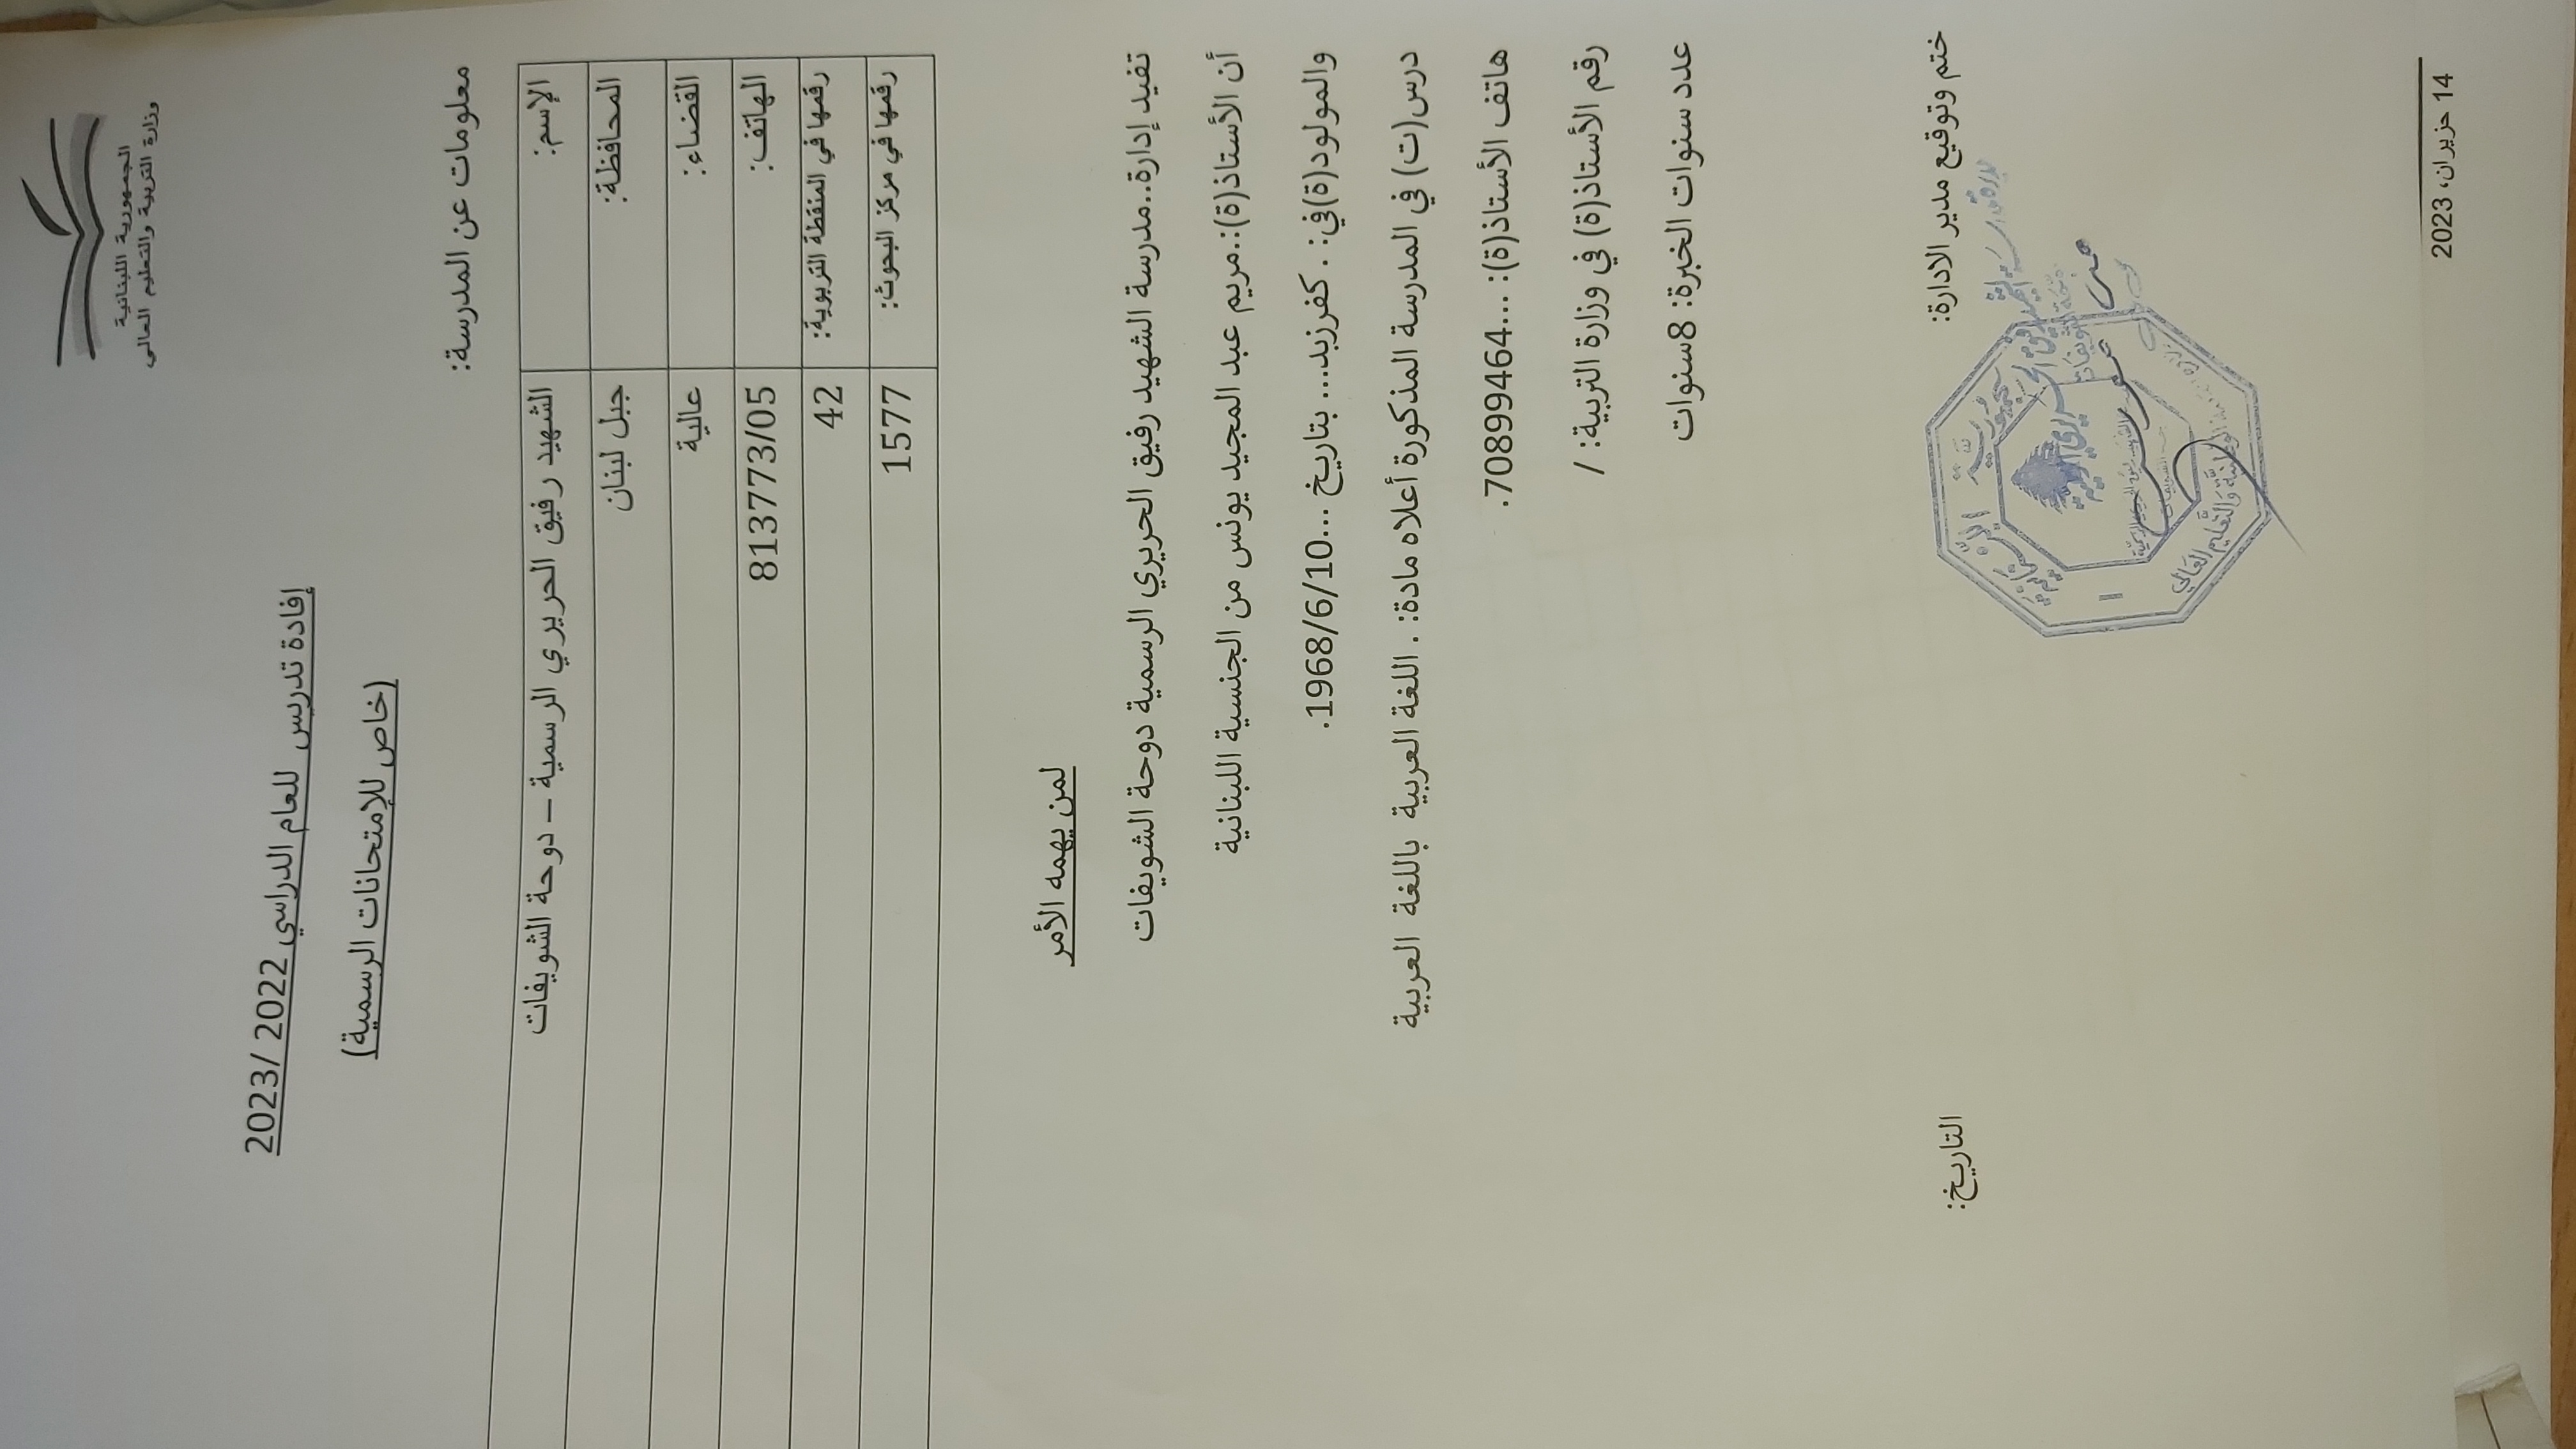 الجمهورية اللبنانية
وزارة التربية والتعليم العالي
إفادة تدريس للعام الدراسي 2022 /2023
(خاص للإمتحانات الرسمية)
معلومات عن المدرسة:
الإسم: الشهيد رفيق الحريري الرسمية – دوحة الشويفات
المحافظة: جبل لبنان
القضاء: عالية
الهاتف: 813773/05
رقمها في المنقطة التربوية: 42
رقمها في مركز البحوث: 1577
لمن يهمه الأمر
تفيد إدارة..مدرسة الشهيد رفيق الحريري الرسمية دوحة الشويفات
أن الأستاذ(ة):.مريم عبد المجيد يونس من الجنسية اللبنانية
والمولود(ة)في: . كفرزبد... بتاريخ ...1968/6/10.
درس(ت) في المدرسة المذكورة أعلاه مادة: . اللغة العربية باللغة العربية
هاتف الأستاذ(ة): ...70899464.
رقم الأستاذ(ة) في وزارة التربية: /
عدد سنوات الخبرة: 8سنوات
ختم وتوقيع مدير الادارة:
التاريخ:
الجمهورية
والتعليم العالي
14 حزيران، 2023